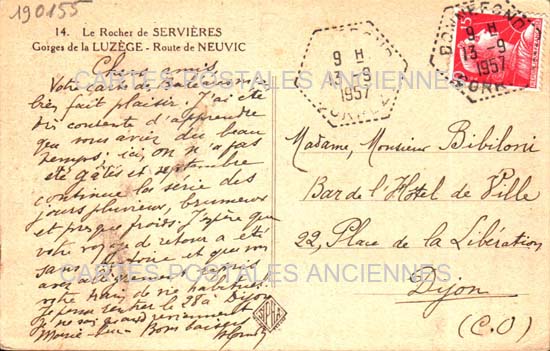 190155
14. Le Rocher de SERVIÈRES
Gorges de la LUZÈGE - Route de NEUVIC
Chers amis
Votre carte de m'a
très fait plaisir. J'ai été
très contente d'apprendre
que vous aviez du beau
temps, ici, on n'a pas
été gâtés et septembre
continue la série des
jours pluvieux, brumeux
et presque froids. J'espère que
votre voyage de retour a été
sans et que vous
avez
votre train de vie habituel.
Je pense rentrer le 28 à Dijon
Bons baisers
BONNEFOND
9 H
13 -9
1957
CORRÈZE
9 H
13 -9
1957
CORRÈZE
5F
Madame, Monsieur Bibiloni
Bar de l'Hôtel de Ville
22, Place de la Libération
Dijon
(C.O)
CARTES POSTALES ANCIENNES
CARTES POSTALES ANCIENNES